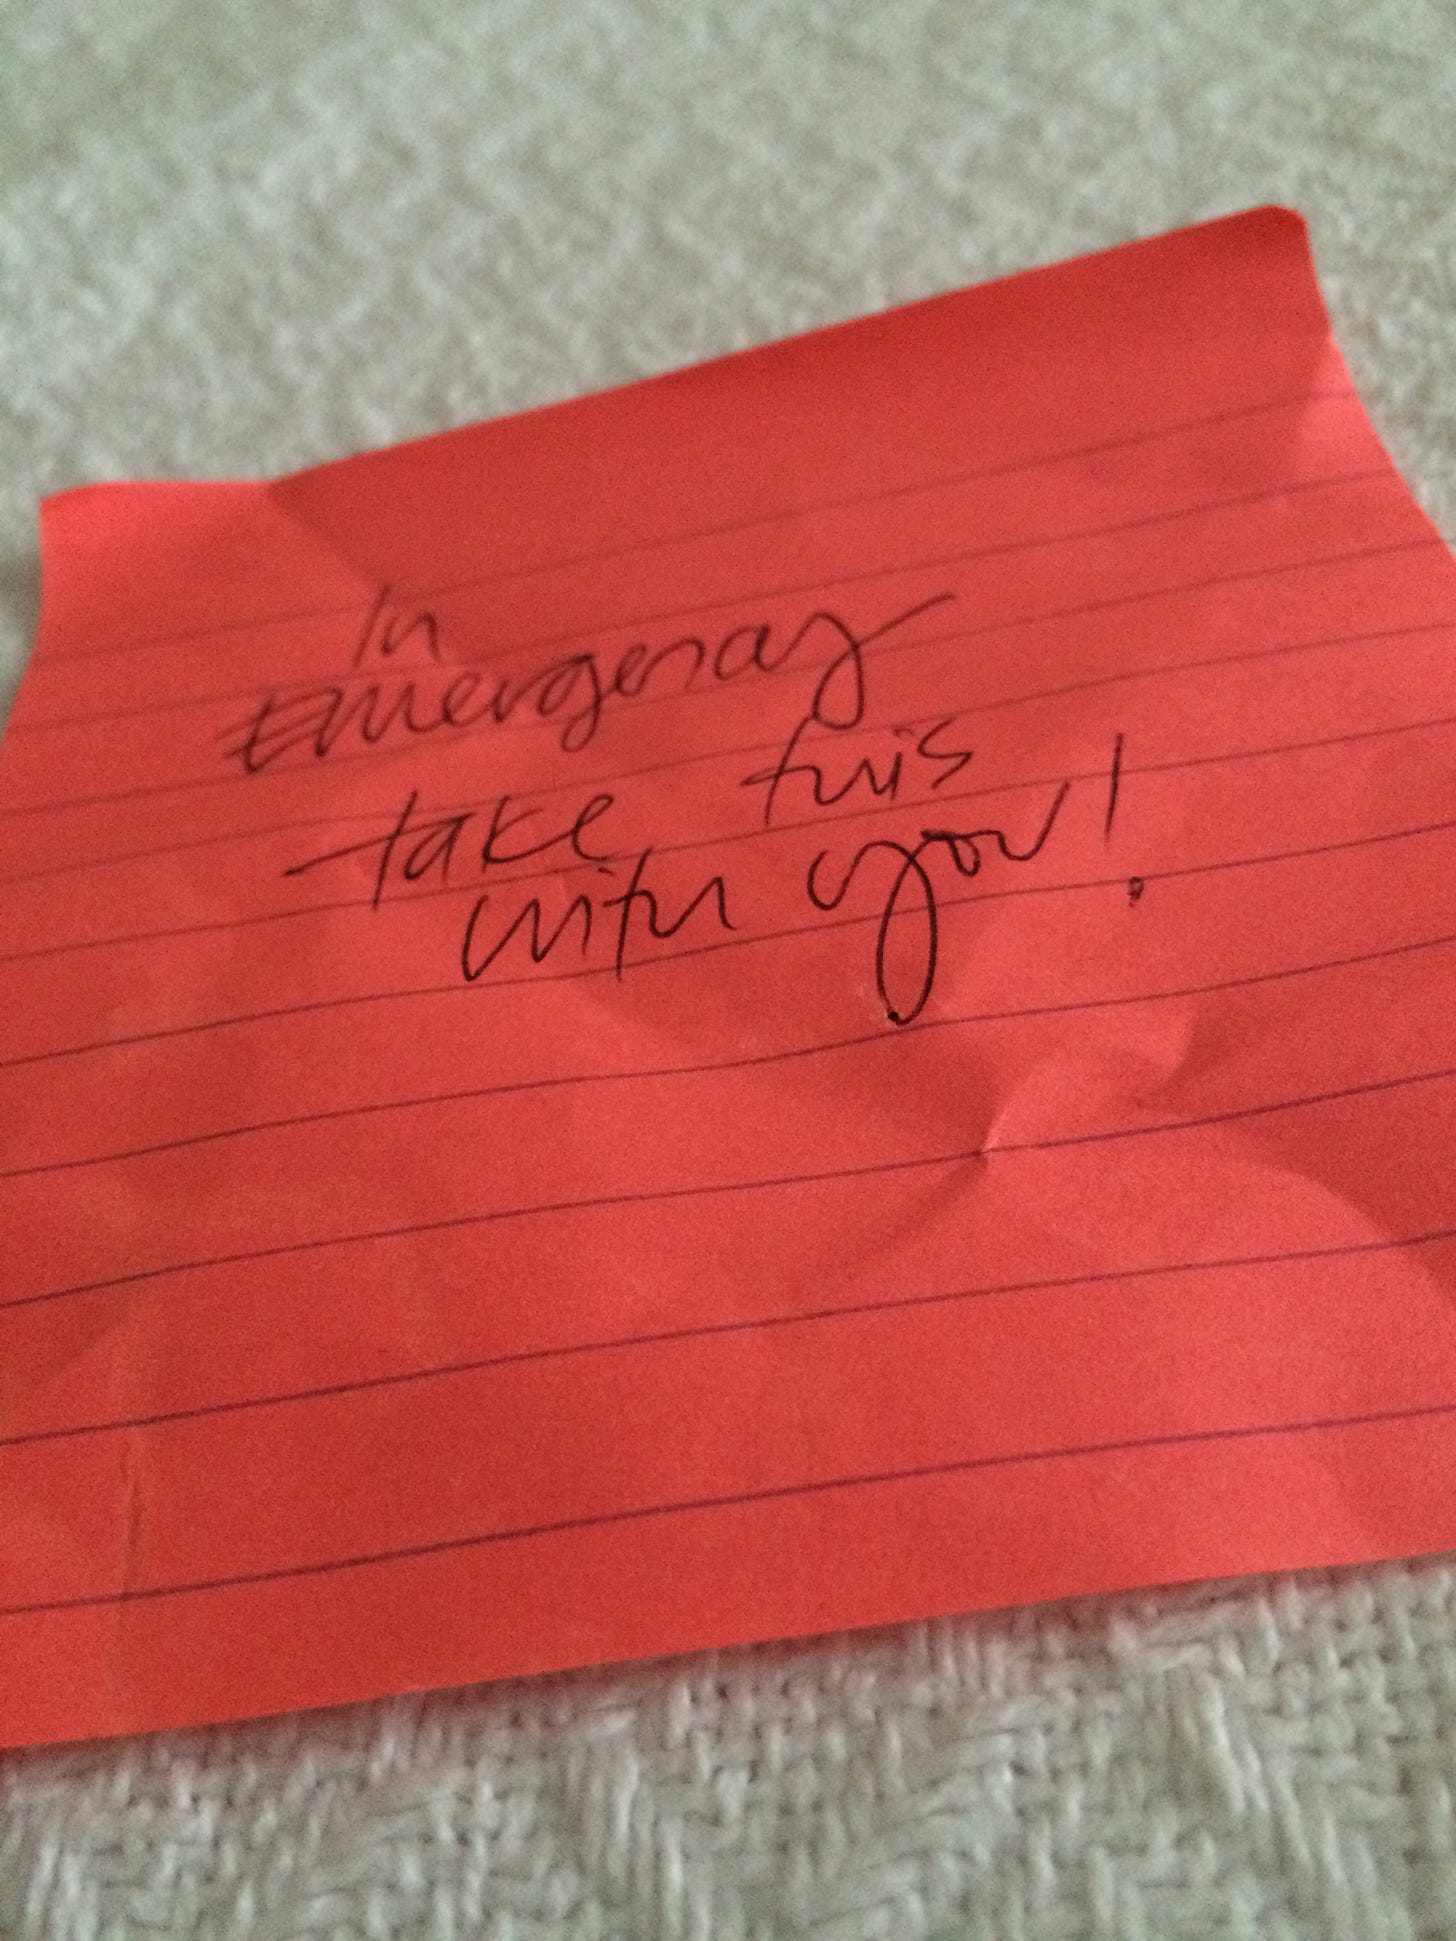 In
Emergency
take this
with you!